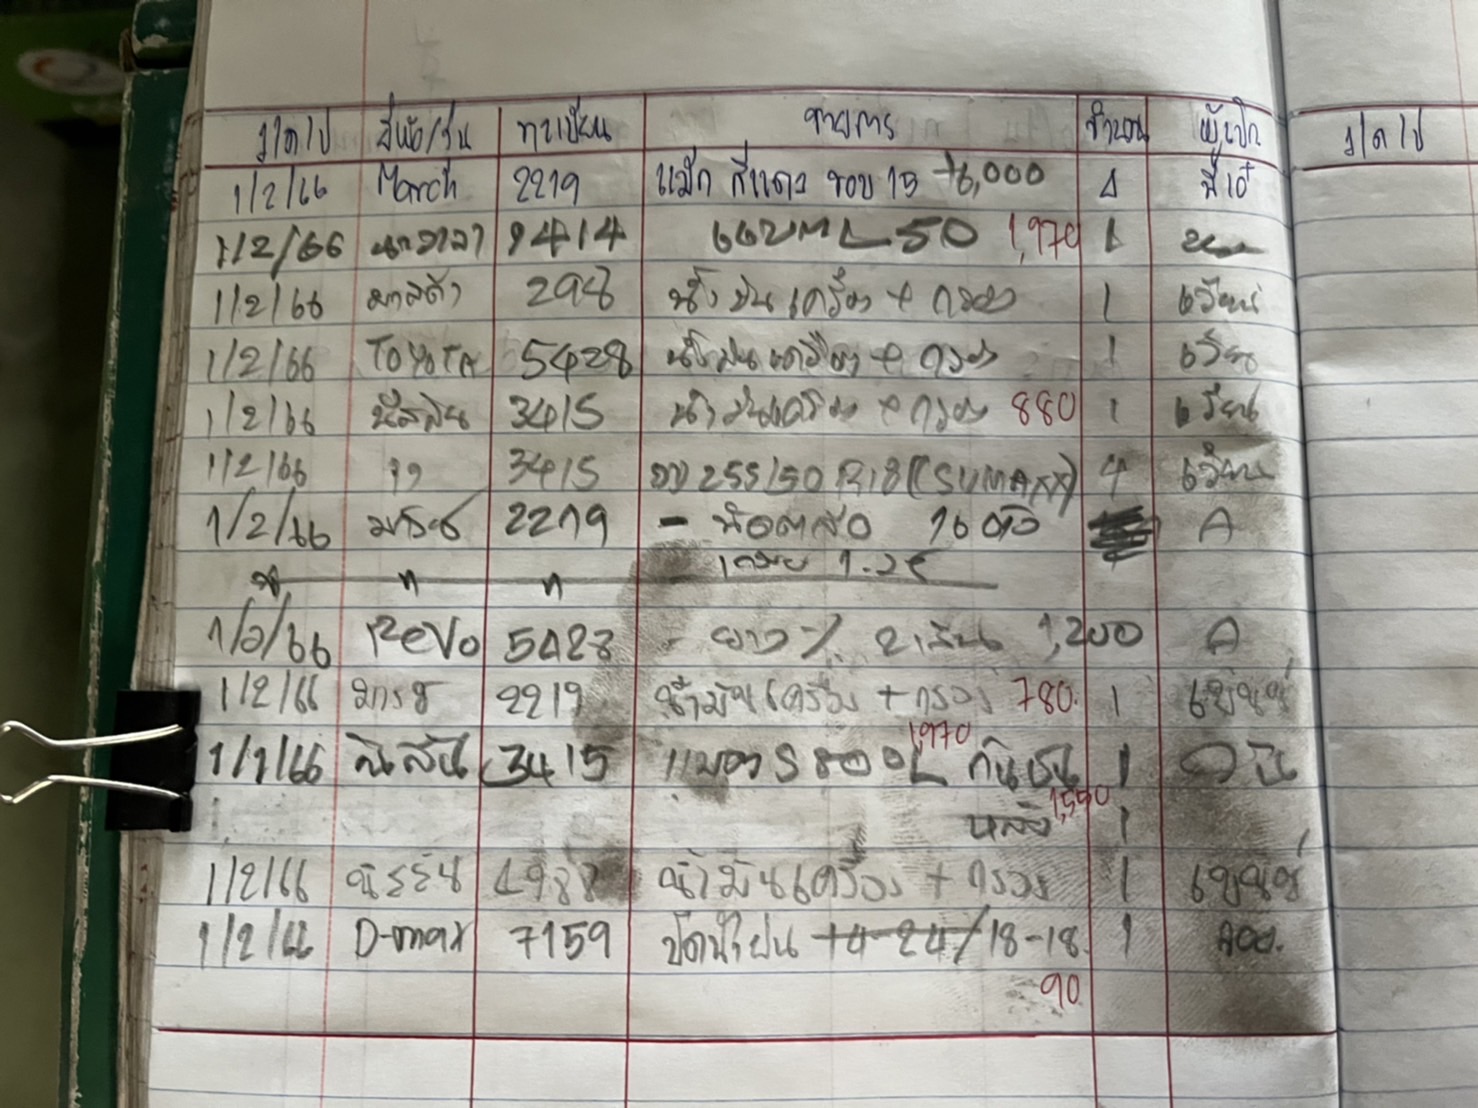 ว/ด/ป ยี่ห้อ/รุ่น ทะเบียน รายการ จำนวน ผู้เบิก ว/ด/ป
1/2/66 March 2219 แม็ก สีแดง ขอบ 15 6,000 4 พี่โอ๋
1/2/66 9414 แบต L 50 1,970 1
1/2/66 มาสด้า 298 น้ำมันเครื่อง + กรอง 1 เวียน
1/2/66 TOYOTA 5428 น้ำมันเครื่อง + กรอง 1 เวียน
1/2/66 นิสสัน 3415 น้ำมันเครื่อง + กรอง 880 1 เวียน
1/2/66 " 3415 255/50 R18 4 เวียน
1/2/66 มาร์ช 2219 - น๊อตล้อ 16 ตัว A
1.25
1/2/66 Revo 5428 - ยาง % 2 เส้น 1,200 A
1/2/66 มาร์ช 2219 น้ำมันเครื่อง + กรอง 780. 1
1/2/66 นิสสัน 3415 แบต 1,970 กันชน 1
หลัง 1,550 1
1/2/66 นิสสัน 4988 น้ำมันเครื่อง + กรอง 1
1/2/66 D-max 7159 ปัดน้ำฝน 14-24/18-18. 1
90